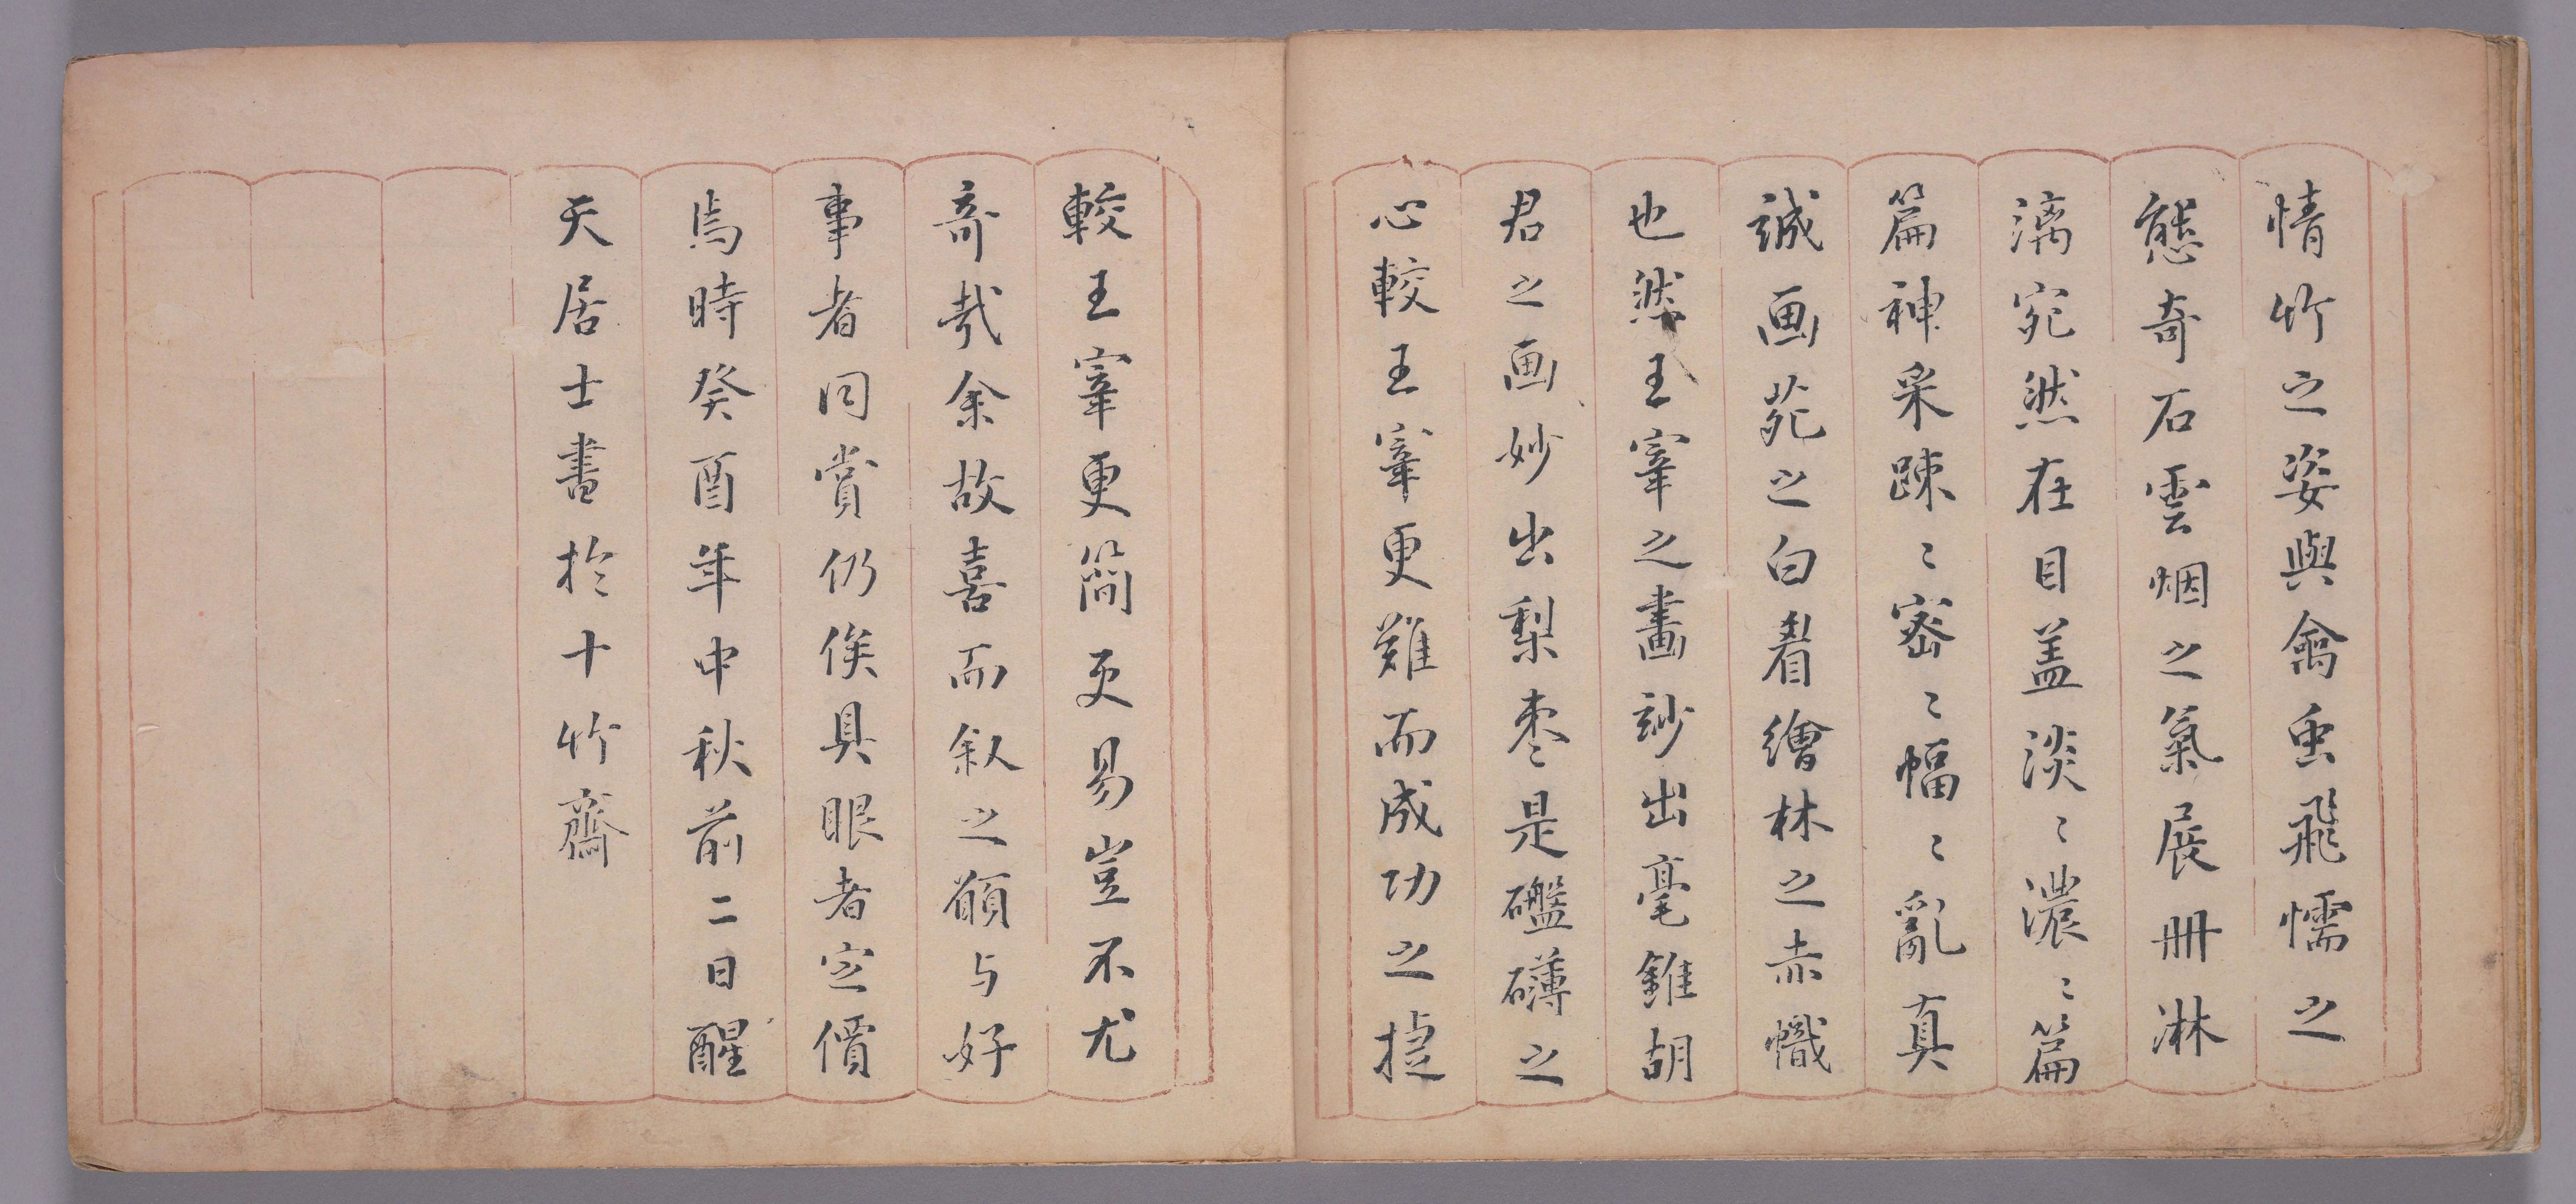 情竹之姿與禽虫飛懦之
態奇石雲烟之氣展冊淋
漓宛然在目盖淡〻濃〻篇
篇神采踈〻密〻幅〻亂真
誠画苑之白眉繪林之赤幟
也然王宰之畫玅出毫錐胡
君之画妙出梨枣是礛礴之
心較王宰更難而成功之捷
較王宰更簡更易豈不尤
奇哉余故喜而叙之願与好
事者同賞仍俟具眼者定價
焉時癸酉年中秋前二日醒
天居士書於十竹齋